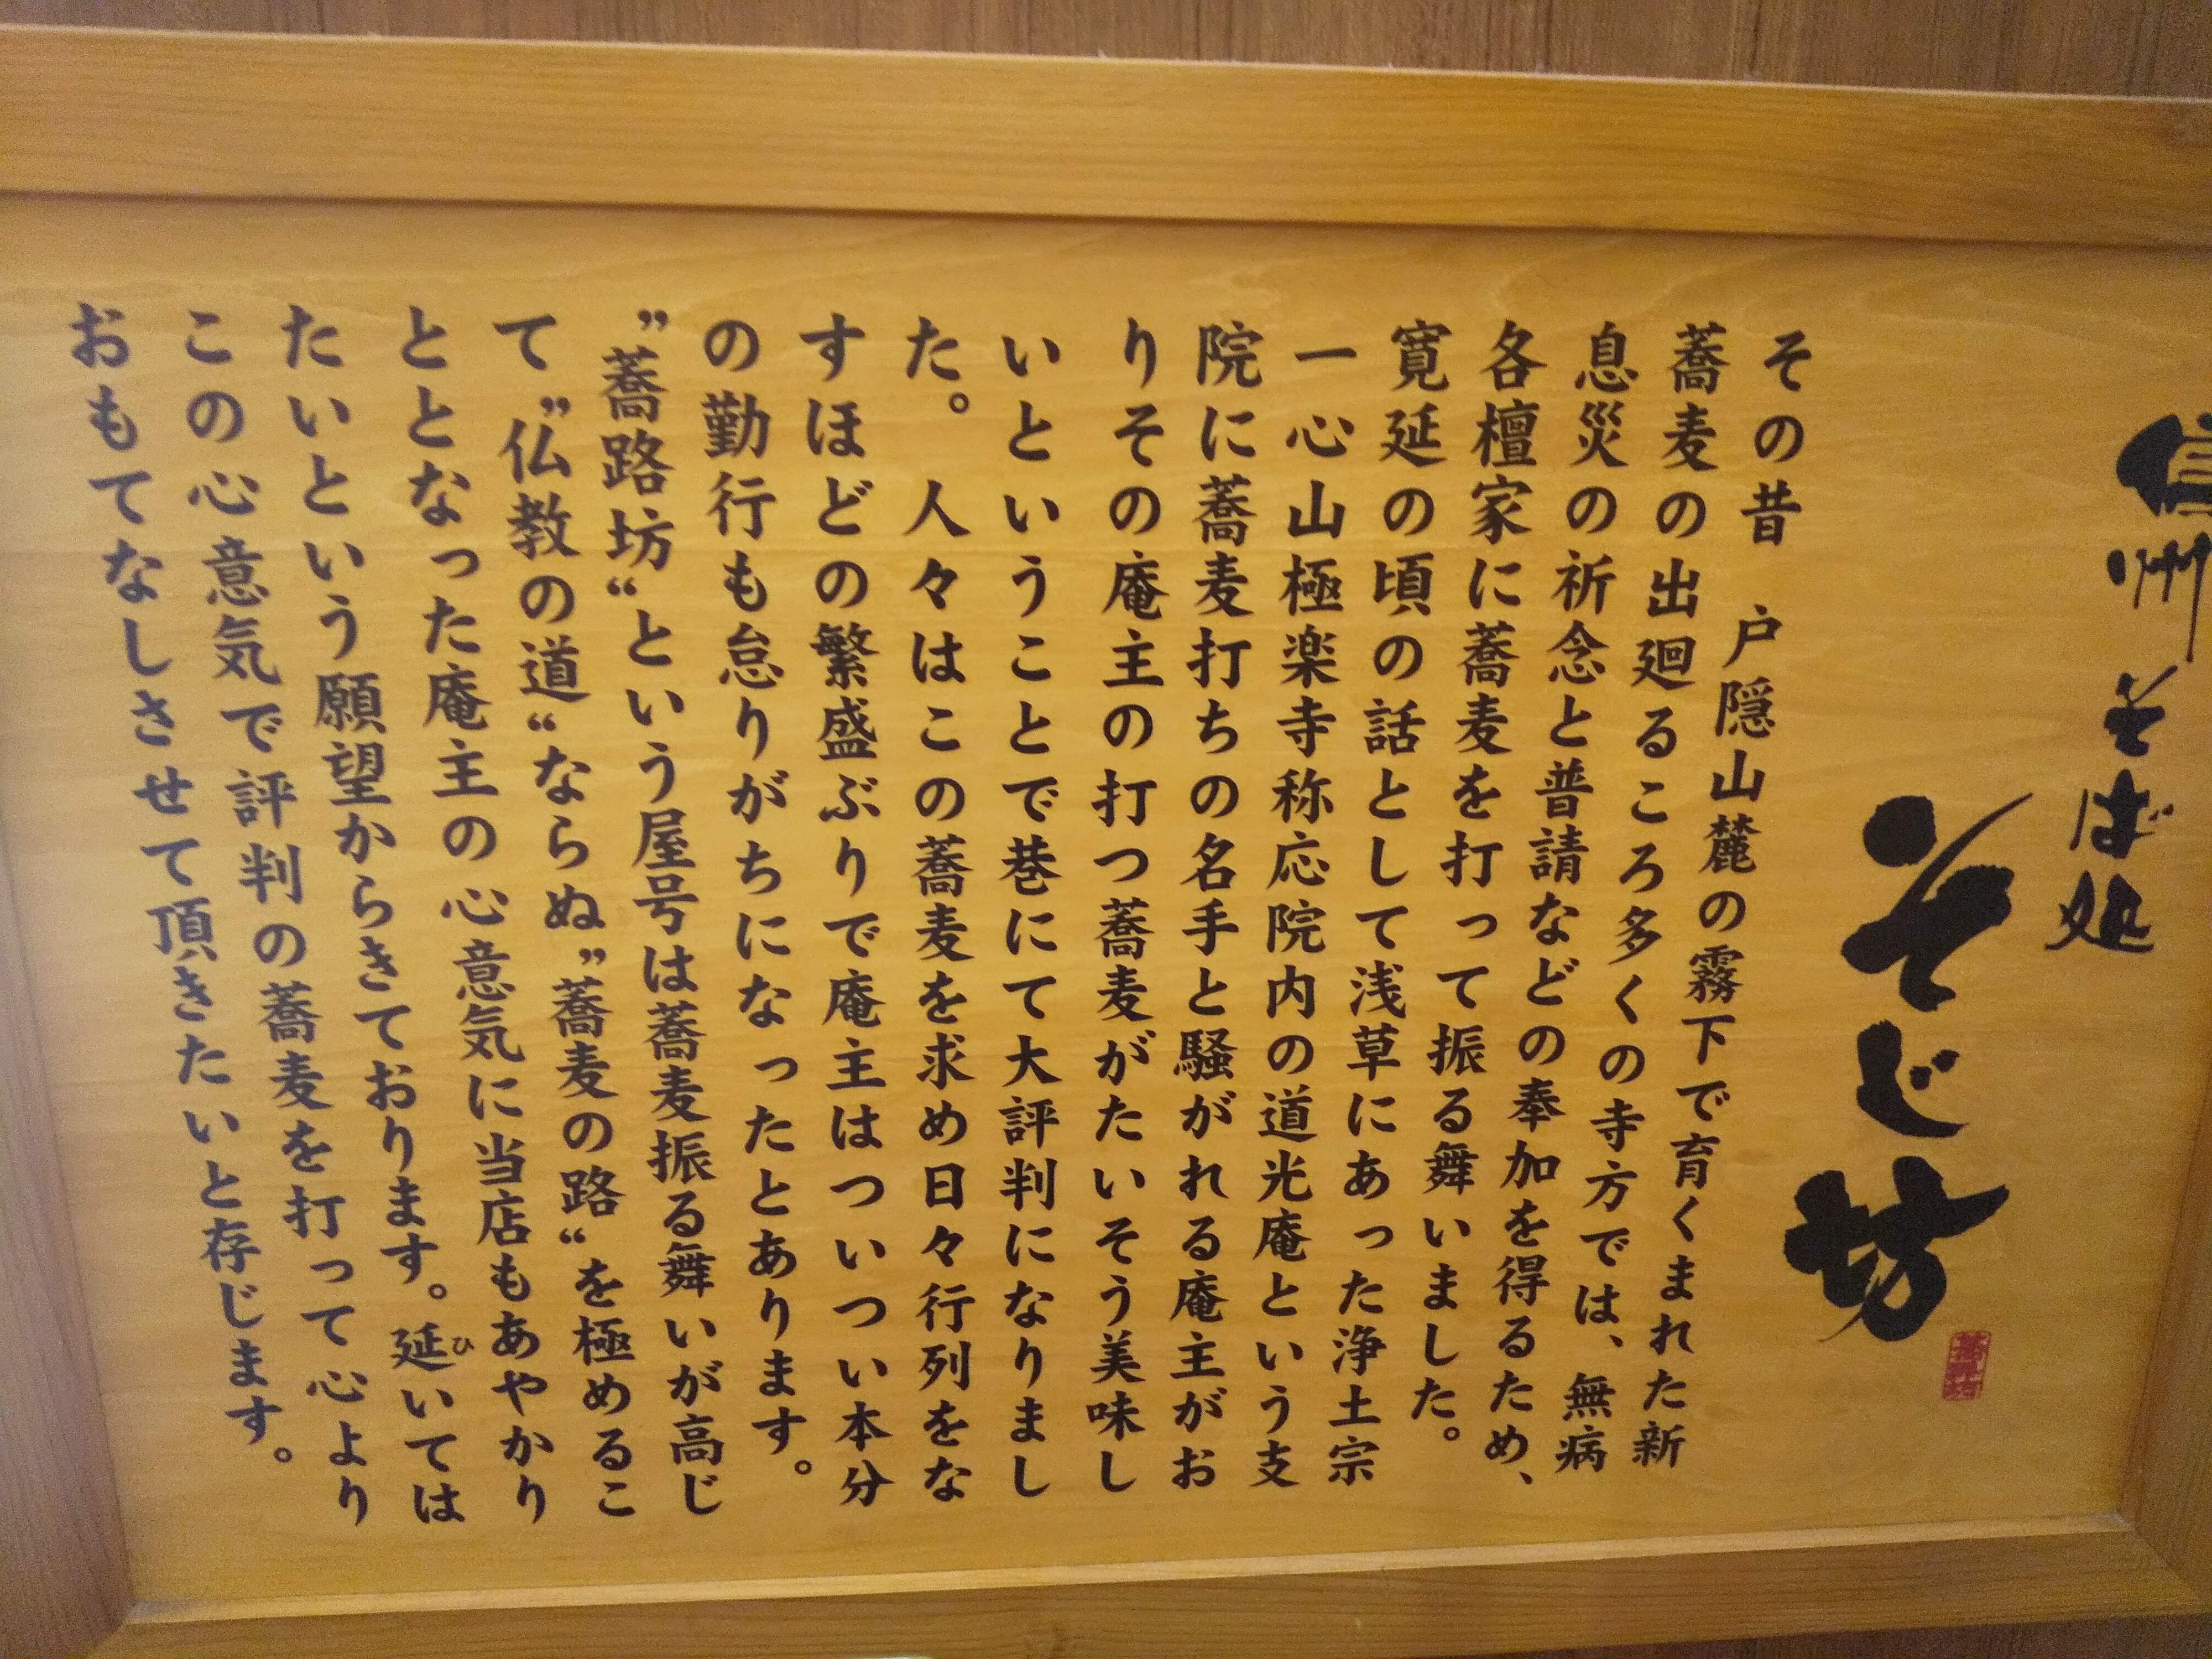 信州そば処
そじ坊
蕎路坊
その昔　戸隠山麓の霧下で育くまれた新
蕎麦の出廻るころ多くの寺方では、無病
息災の祈念と普請などの奉加を得るため、
各檀家に蕎麦を打って振る舞いました。
寛延の頃の話として浅草にあった浄土宗
一心山極楽寺称応院内の道光庵という支
院に蕎麦打ちの名手と騒がれる庵主がお
りその庵主の打つ蕎麦がたいそう美味し
いということで巷にて大評判になりまし
た。人々はこの蕎麦を求め日々行列をな
すほどの繁盛ぶりで庵主はついつい本分
の勤行も怠りがちになったとあります。
”蕎路坊“という屋号は蕎麦振る舞いが高じ
て”仏教の道“ならぬ”蕎麦の路“を極めるこ
ととなった庵主の心意気に当店もあやかり
たいという願望からきております。延いては
ひ
この心意気で評判の蕎麦を打って心より
おもてなしさせて頂きたいと存じます。